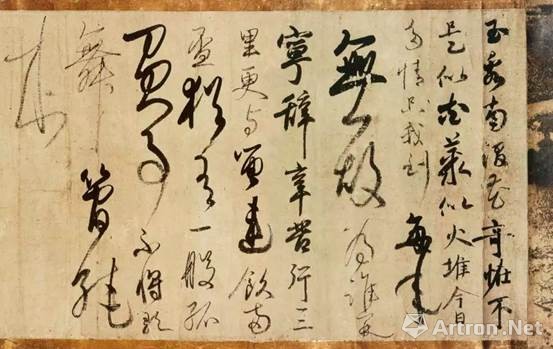 玉泉南澗花奇怪不
是似花藂似火堆今日
多情只我到每年
無故為誰開
寧辭辛苦行三
里更与留連飲兩
盃猶有一般孤
負事不将歌
舞管絃
来
Artron.Net